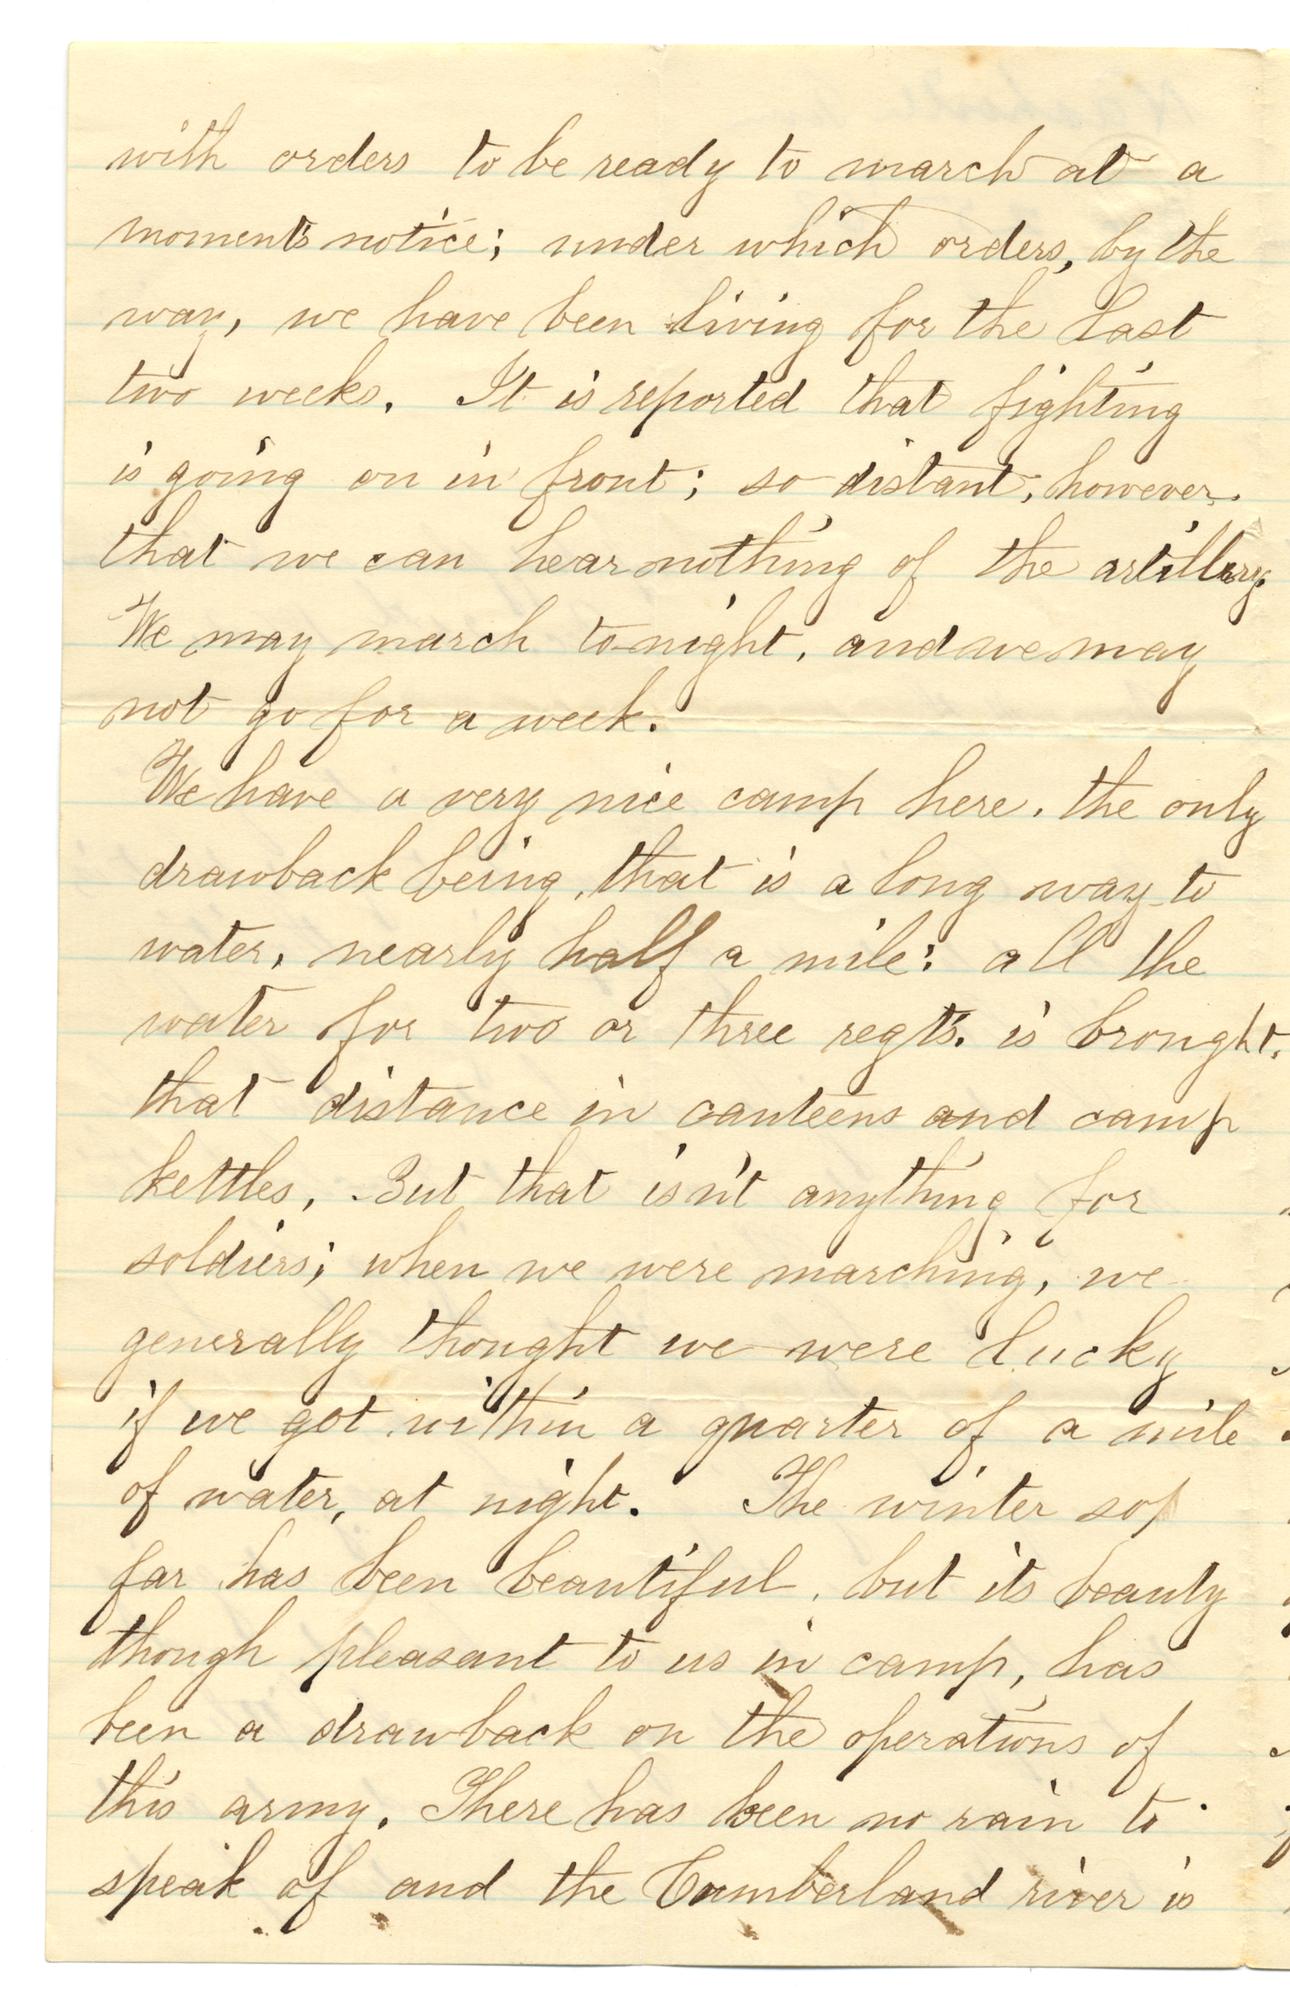 with orders to be ready to march at a
moment's notice; under which orders, by the
way, we have been living for the last
two weeks. It is reported that fighting
is going on in front; so distant, however,
that we can hear nothing of the artillery.
We may march to-night, and we may
not go for a week.
We have a very nice camp here, the only
drawback being, that is a long way to
water, nearly half a mile; all the
water for two or three regts. is brought,
that distance in canteens and camp
kettles. But that isn't anything for
soldiers; when we were marching, we
generally thought we were lucky
if we got within a quarter of a mile
of water, at night. The winter so
far has been beautiful, but its beauty
though pleasant to us in camp, has
been a drawback on the operations of
this army. There has been no rain to
speak of and the Cumberland river is